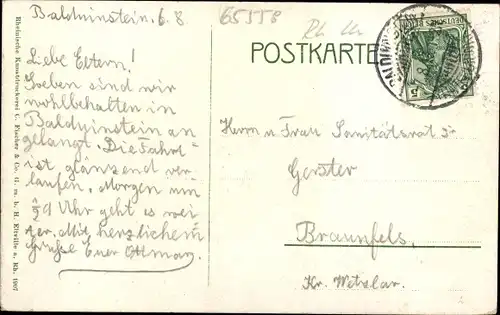 Balduinstein, 6. 8.
65558
Rh
POSTKARTE
5
Liebe Eltern!
Soeben sind wir
wohlbehalten in
Balduinstein an
gelangt. Die Fahrt
ist glänzend ver
laufen. Morgen um
1/2 9 Uhr geht es wei
ter. Mit herzlichem
Grusse Euer Ottmar.
Herrn u. Frau Sanitätsrat Dr
Gerster
Braunfels,
Kr. Wetzlar.
Rheinische Kunstdruckerei C. Fischer & Co. G. m. b. H. Eltville a. Rh. 1907